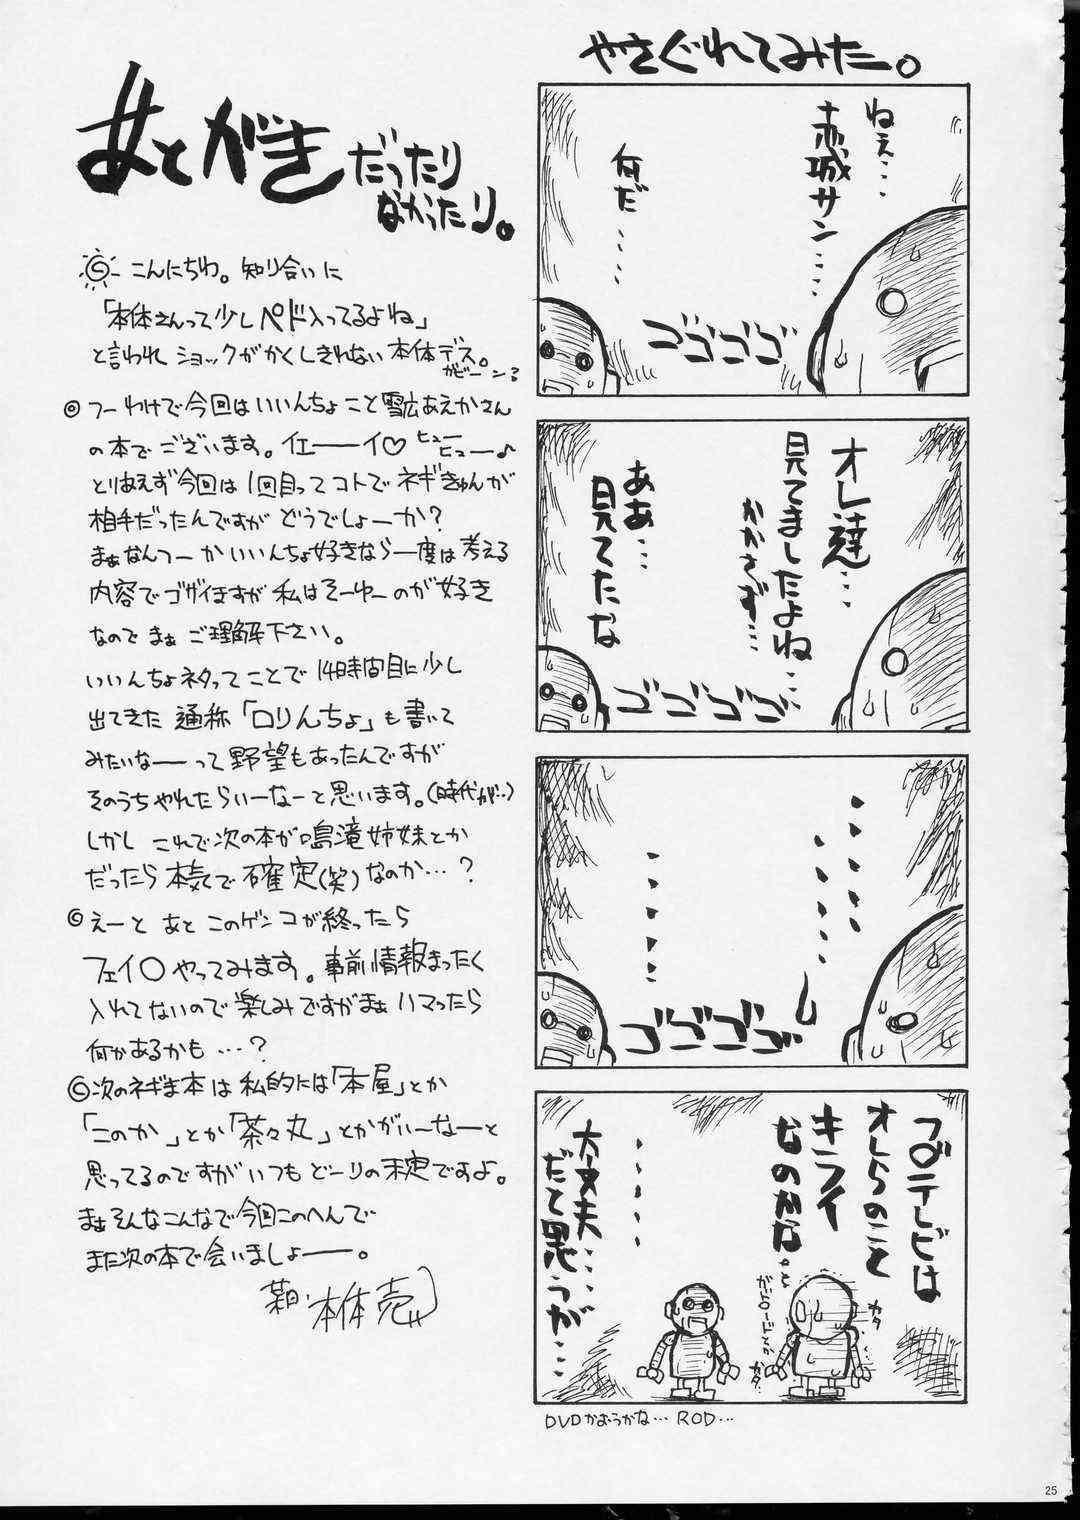 あとがき
だったり
なかったり。
こんにちわ。知り合いに
「本体さんって少しペド入ってるよね」
と言われショックがかくしきれない本体デス。
ガビーン
つーわけで今回はいいんちょこと雪広あえかさん
の本でございます。イエーーイ♡ ヒュー
ヒュー♪
とりあえず今回は1回目ってコトでネギきゅんが
相手だったんですがどうでしょーか?
まぁなんつーかいいんちょ好きなら一度は考える
内容でゴザイますが私はそーゆーのが好き
なのでまぁご理解下さい。
いいんちょネタってことで14時間目に少し
出てきた通称「ロリんちょ」も書いて
みたいなーーって野望もあったんですが
そのうちやれたらいーなーと思います。(時代が…)
しかしこれで次の本が鳴滝姉妹とか
だったら本気で確定(笑)なのか…?
えーとあとこのゲンコが終ったら
フェイ〇やってみます。事前情報まったく
入れてないので楽しみですがまぁハマったら
何かあるかも…?
次のネギま本は私的には「本屋」とか
「このか」とか「茶々丸」とかがいーなーと
思ってるのですがいつもどーりの未定ですよ。
まぁそんなこんなで今回このへんで
また次の本で会いましょーー。
本体売
やさぐれてみた。
ねぇ…
赤城サン…
何だ…
ゴゴゴゴ
オレ達…
見てましたよね…
かかさず…
ああ…
見てたな
ゴゴゴゴ
ゴゴゴゴ
フ〇テレビは
オレらのこと
キライ
なのかな…
カタ
カタ…
大丈夫…
だと思うが…
DVDかおうかな… ROD…
25